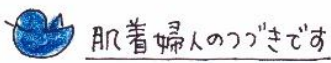 肌着婦人のつづきです